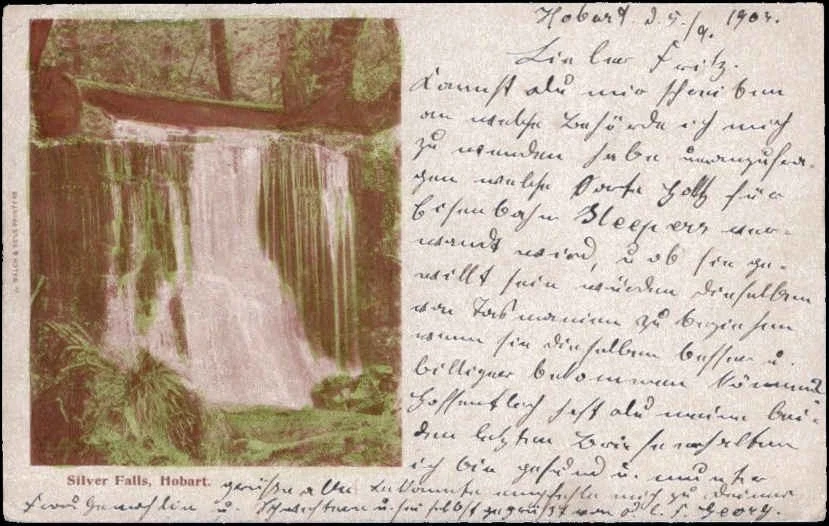 Hobart d. 5./9. 1903.
Lieber Fritz.
Kannst du mir schreiben
an welche Behörde ich mich
zu wenden habe um anzufra-
gen welche Sorte Holz für
Eisenbahn Sleepers ver-
wandt wird, u ob sie ge-
willt sein würden dieselben
von Tasmanien zu beziehen
wenn sie dieselben besser u.
billiger bekommen können
Hoffentlich hast du meine bei-
den letzten Briefe erhalten
ich bin gesund u. munter
Silver Falls, Hobart.
grüße alle Bekannte empfehle mich zu deiner
Frau Gemahlin u. Schwestern u. sei selbst gegrüßt von Georg.
J. WALCH & SONS PRINTERS